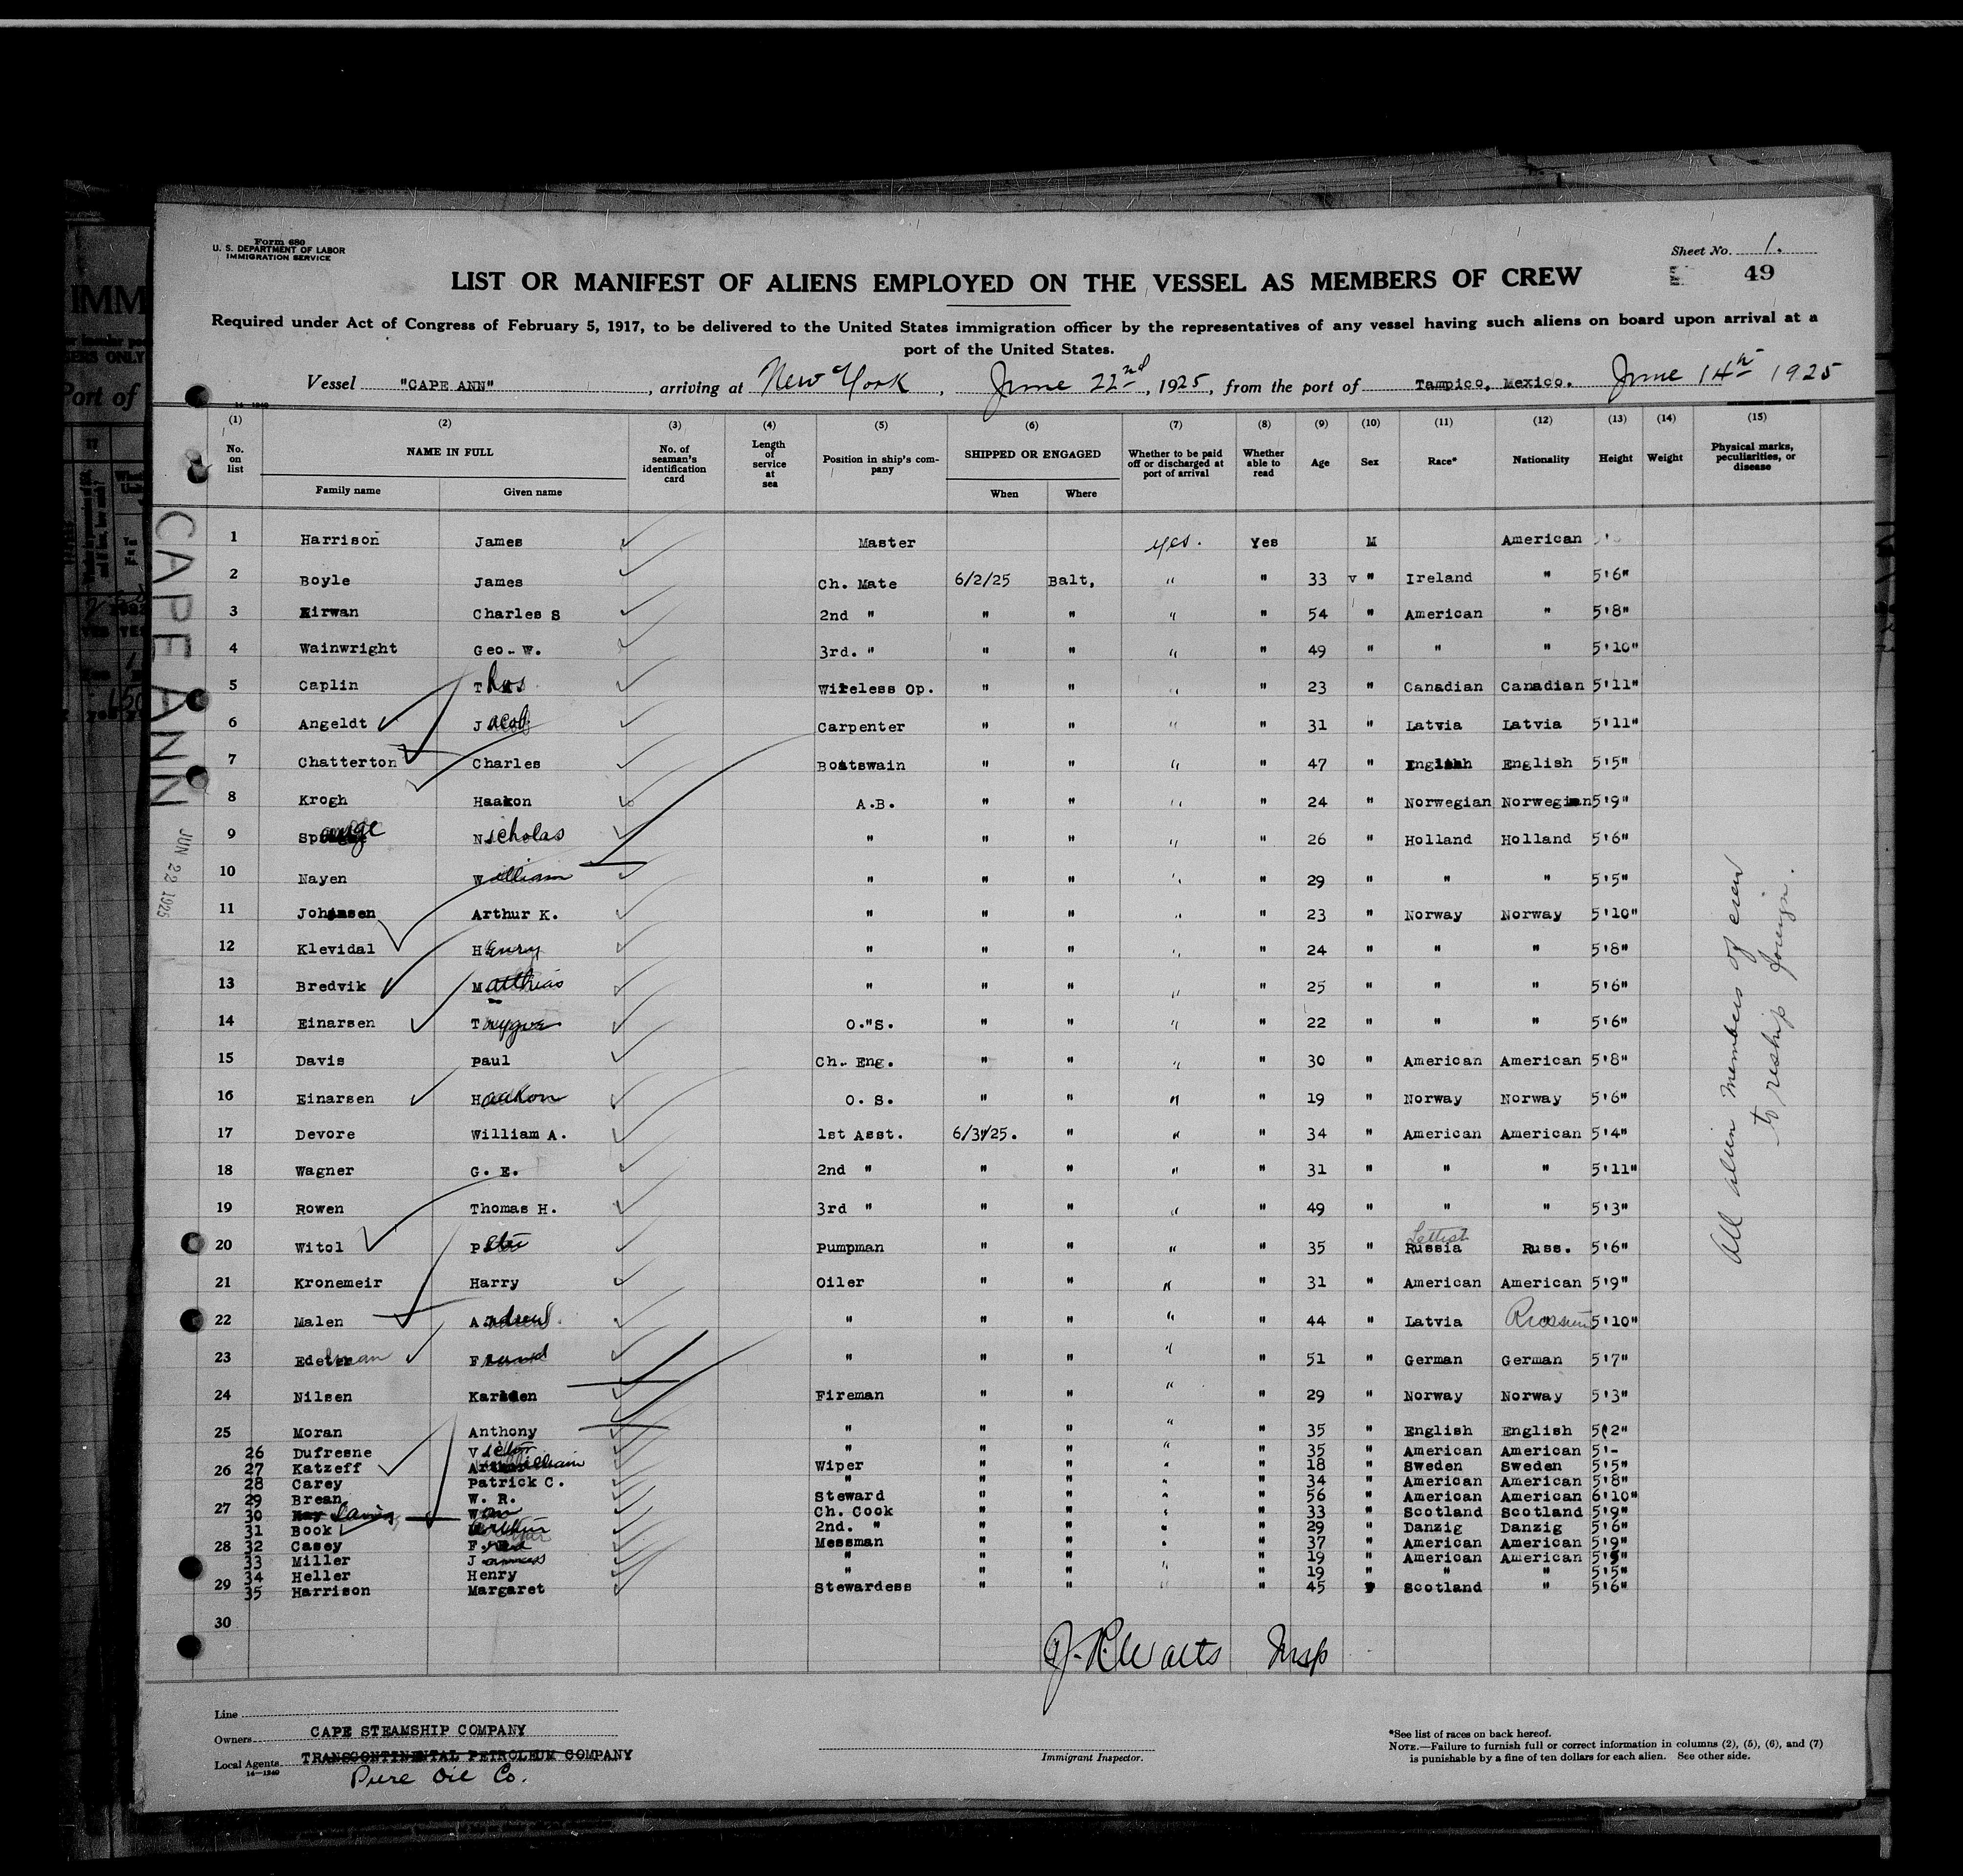 Form 680
U. S. DEPARTMENT OF LABOR
IMMIGRATION SERVICE
Sheet No. 1.
49
LIST OR MANIFEST OF ALIENS EMPLOYED ON THE VESSEL AS MEMBERS OF CREW
Required under Act of Congress of February 5, 1917, to be delivered to the United States immigration officer by the representatives of any vessel having such aliens on board upon arrival at a
port of the United States.
Vessel "CAPE ANN", arriving at New York, June 22nd, 1925, from the port of Tampico, Mexico. June 14th 1925
14—1240
(1) (2) (3) (4) (5) (6) (7) (8) (9) (10) (11) (12) (13) (14) (15)
No. on list NAME IN FULL No. of seaman's identification card Length of service at sea Position in ship's company SHIPPED OR ENGAGED Whether to be paid off or discharged at port of arrival Whether able to read Age Sex Race* Nationality Height Weight Physical marks, peculiarities, or disease
Family name Given name When Where
1 Harrison James Master yes. Yes M American
2 Boyle James Ch. Mate 6/2/25 Balt, " " 33 v " Ireland " 5'6"
3 Kirwan Charles S 2nd " " " " " 54 " American " 5'8"
4 Wainwright Geo. W. 3rd. " " " " " 49 " " " 5'10"
5 Caplin Thos. Wireless Op. " " " " 23 " Canadian Canadian 5'11"
6 Angeldt Jacob Carpenter " " " " 31 " Latvia Latvia 5'11"
7 Chatterton Charles Boatswain " " " " 47 " English English 5'5"
8 Krogh Haakon A.B. " " " " 24 " Norwegian Norwegian 5'9"
9 Spange Nicholas " " " " " 26 " Holland Holland 5'6"
10 Nayen William " " " " " 29 " " " 5'5"
11 Johnsen Arthur K. " " " " " 23 " Norway Norway 5'10"
12 Klevidal Henry " " " " " 24 " " " 5'8"
13 Bredvik Matthias " " " " " 25 " " " 5'6"
14 Einarsen Trygve O."S. " " " " 22 " " " 5'6"
15 Davis Paul Ch. Eng. " " " " 30 " American American 5'8"
16 Einarsen Haakon O. S. " " " " 19 " Norway Norway 5'6"
17 Devore William A. 1st Asst. 6/3/25. " " " 34 " American American 5'4"
18 Wagner G. E. 2nd " " " " " 31 " " " 5'11"
19 Rowen Thomas H. 3rd " " " " " 49 " " " 5'3"
Lettish
20 Witol Pete Pumpman " " " " 35 " Russia Russ. 5'6"
21 Kronemeir Harry Oiler " " " " 31 " American American 5'9"
22 Malen Andrew " " " " " 44 " Latvia Russian 5'10"
23 Edelman " " " " " 51 " German German 5'7"
24 Nilsen Karsten Fireman " " " " 29 " Norway Norway 5'3"
25 Moran Anthony " " " " " 35 " English English 5'2"
26 Dufresne Victor " " " " " 35 " American American 5'-
26 27 Katzeff William Wiper " " " " 18 " Sweden Sweden 5'5"
28 Carey Patrick C. " " " " " 34 " American American 5'8"
29 Brean W. R. Steward " " " " 56 " American American 6'10"
27 30 Wm Ch. Cook " " " " 33 " Scotland Scotland 5'9"
31 Book Arthur 2nd. " " " " " 29 " Danzig Danzig 5'6"
28 32 Casey Fred Messman " " " " 37 " American American 5'9"
33 Miller James " " " " " 19 " American American 5'5"
34 Heller Henry " " " " " 19 " " " 5'5"
29 35 Harrison Margaret Stewardess " " " " 45 Scotland " 5'6"
30
All alien members of crew
to reship foreign.
CAPE ANN
JUN 22 1925
J. R. Watts Insp
Line
Owners CAPE STEAMSHIP COMPANY
Local Agents TRANSCONTINENTAL PETROLEUM COMPANY
14—1240
Pure Oil Co.
Immigrant Inspector.
*See list of races on back hereof.
NOTE.—Failure to furnish full or correct information in columns (2), (5), (6), and (7)
is punishable by a fine of ten dollars for each alien. See other side.